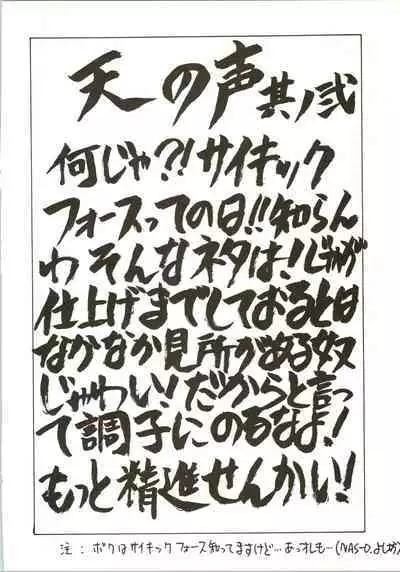 天の声其ノ弐
何じゃ?!サイキック
フォースってのは!!知らん
わそんなネタは!じゃが
仕上げまでしておるとは
なかなか見所がある奴
じゃわい!だからと言っ
て調子にのるなよ!
もっと精進せんかい!
注:ボクはサイキックフォース知ってますけど…あっすしも…(NAS-O.よし坊)